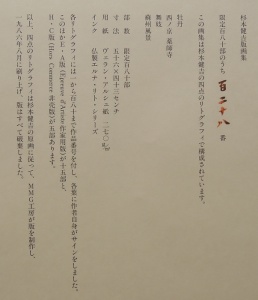 杉本健吉版画集
限定百八十部のうち 百二十八 番
この画集は杉本健吉の四点のリトグラフィで構成されています。
牡丹
西ノ京 薬師寺
舞妓
蘇州風景
部数 限定百八十部
寸法 五十六×四十三センチ
用紙 ヴェラン・アルシュ紙 二七〇g/㎡
インク 仏製エルナ・リト・シリーズ
各リトグラフィには一から百八十まで作品番号を付し、各葉に作者自身がサインをしました。
このほかE・A版(Epreuve d'Artiste 作家用版)が十五部と、
H・C版(Hors Commerce 非売版)が五部あります。
以上、四点のリトグラフィは杉本健吉の原画に従って、MMG工房が版を制作し、
一九八六年八月に刷り上げ、版はすべて破棄しました。